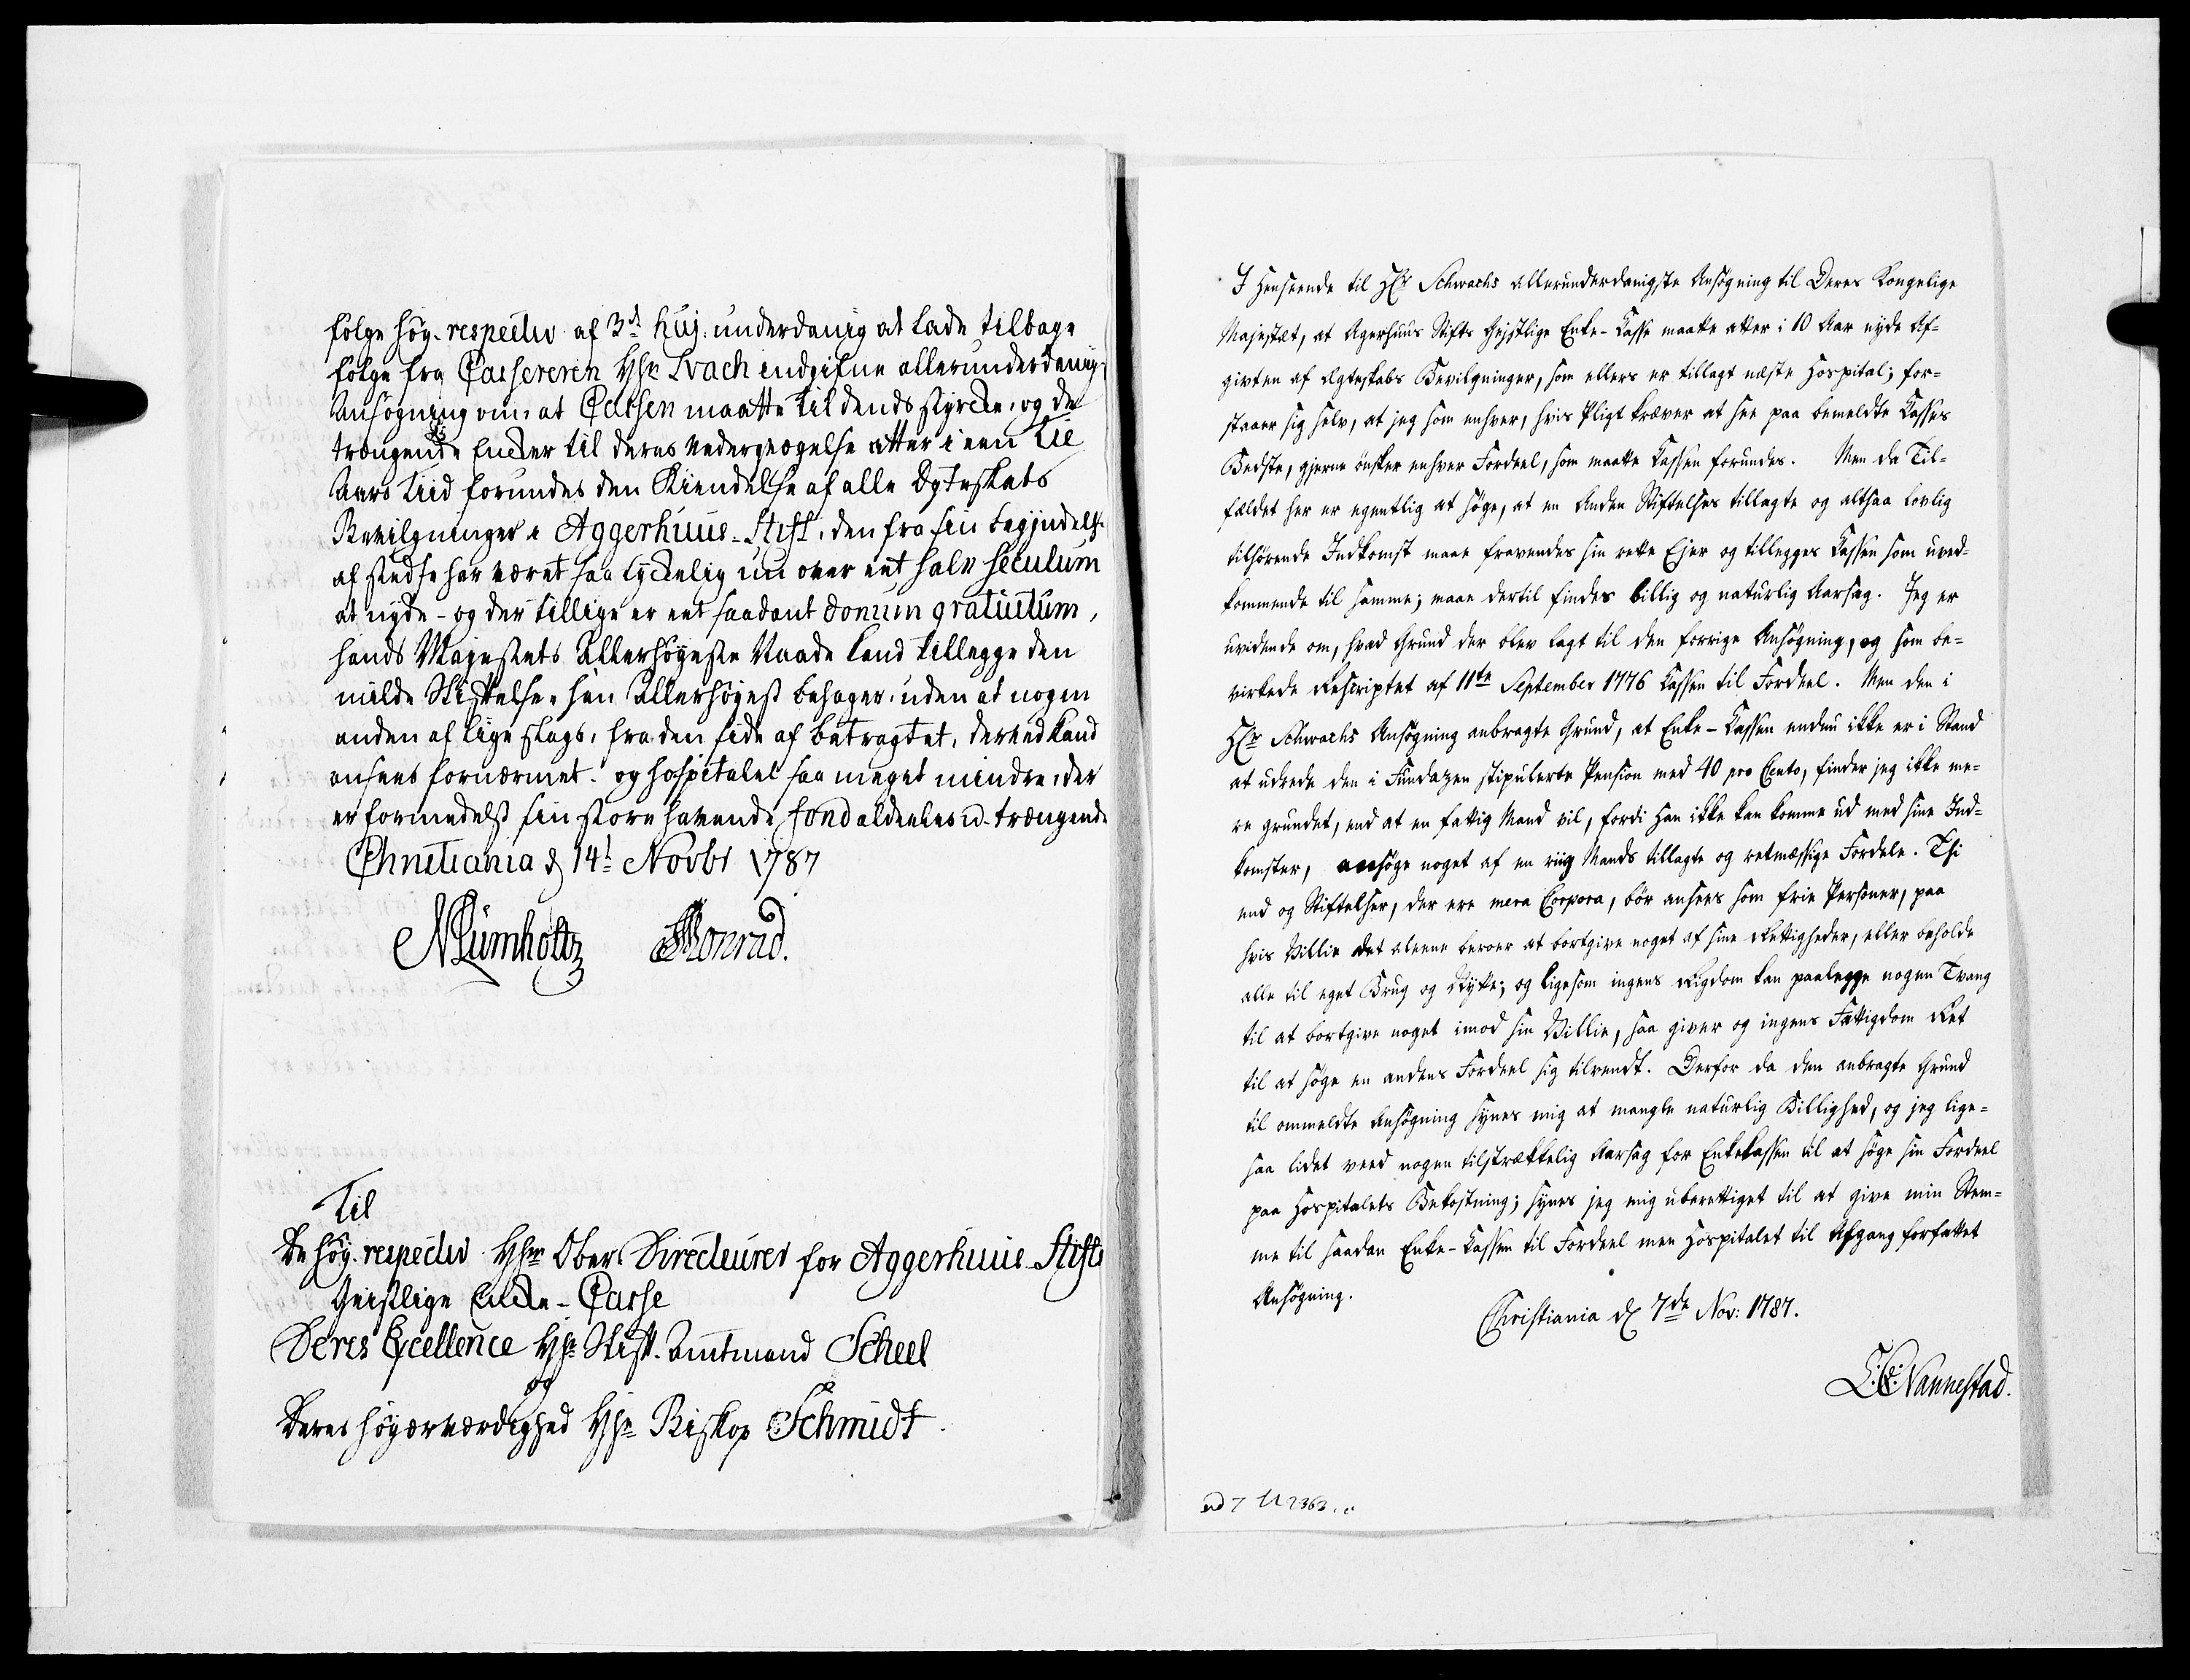 følge høy. respective af 3d huj: underdanig at lade tilbage
følge fra Cassereren Hr Svach indgifne allerunderdanig:
Ansøgning om, at Cassen maatte til dends styrcke, og de
trængende Encker til deres vedergvægelse atter i een Tie
Aars Tiid forundes den Kiendelse af alle Ægteskabs
Bevilgninger i Aggerhuus-Stift, den fra sin begyndelse
af stedse har været saa lyckelig nu over eet halv seculum
at nyde - og der tillige er eet saadant donum gratuitum,
hands Majestets Allerhøyeste Naade kand tillegge den
milde Stiftelse, han Allerhøyest behager, uden at nogen
anden af lige slags, fra den side af betragtet, derved kand
ansees fornærmet. og hospitalet saa meget mindre, der
er formedelst sin store havende fond aldeeles u-trængende
Christiania d 14t Novbr 1787
N Lumholtz Konrad.
Til
De høy. respective Hhrr Ober-Directeurer for Aggerhuus Stifts
Geistlige Encke-Casse
Deres Excellence Hr Stift-Amtmand Scheel
og
Deres Høyærværdighed Hr Biskop Schmidt
I Henseende til Hr Schwachs allerunderdanigste Ansøgning til Deres Kongelige
Majestæt, at Agerhuus Stifts Gejstlige Enke-Kasse maatte atter i 10 Aar nyde Af-
givten af Ægteskabs Bevilgninger, som ellers er tillagt næste Hospital; for-
staaer sig selv, at jeg som enhver, hvis Pligt kræver at see paa bemeldte Kasses
Bedste, gjerne ønsker enhver Fordeel, som maatte Kassen forundes. Men da Til-
fældet her er egentlig at søge, at en Anden Stiftelses tillagte og altsaa lovlig
tilhørende Indkomst maae fravendes sin rette Ejer og tillegges Kassen som uved-
kommende til samme; maae dertil findes billig og naturlig Aarsag. Jeg er
uvidende om, hvad Grund der blev lagt til den forrige Ansøgning, og som be-
virkede Rescriptet af 11te September 1776 Kassen til Fordeel. Men den i
Hr Schwachs Ansøgning anbragte Grund, at Enke-Kassen endnu ikke er i Stand
at udrede den i Fundazen stipulerte Pension med 40 pro Cento, finder jeg ikke me-
re grundet, end at en fattig Mand vil, fordi han ikke kan komme ud med sine Ind-
komster, ansøge noget af en riig Mands tillagte og retmæssige Fordele. Thi
end og Stiftelser, der ere mera Corpora, bør ansees som frie Personer, paa
hvis Villie det aleene beroer at bortgive noget af sine Rettigheder, eller beholde
alle til eget Brug og Nytte; og ligesom ingens Rigdom kan paalegge nogen Tvang
til at bortgive noget imod sin Villie, saa giver og ingens Fattigdom Ret
til at søge en andens Fordeel sig tilvendt. Derfor da den anbragte Grund
til ommeldte Ansøgning synes mig at mangle naturlig Billighed, og jeg lige-
saa lidet veed nogen tilstrækkelig Aarsag for Enkekassen til at søge sin Fordeel
paa Hospitalets Bekostning; synes jeg mig uberettiget til at give min Stem-
me til saadan Enke-Kassen til Fordeel men Hospitalet til Afgang forfattet
Ansøgning.
Christiania d 7de Nov: 1787.
Nannestad.
ad 7